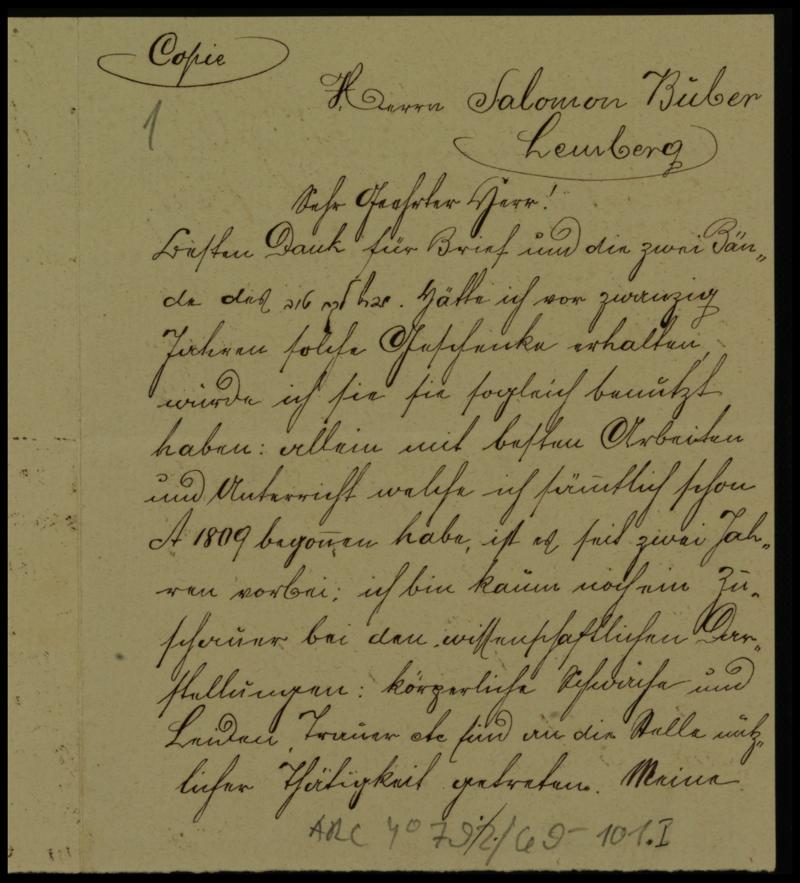 Copie
1
Herrn Salomon Buber
Lemberg
Sehr Geehrter Herr!
Besten Dank für Brief und die zwei Bän„
de des שכל טוב. Hätte ich vor zwanzig
Jahren solche Geschenke erhalten,
würde ich sie sie sogleich benützt
haben: allein mit besten Arbeiten
und Unterricht welche ich sämtlich schon
A 1809 begonnen habe, ist es seit zwei Jah„
ren vorbei; ich bin kaum noch ein Zu„
schauer bei den wissenschaftlichen Dar„
stellungen: körperliche Schwäche und
Leiden, Trauer etc sind an die Stelle nütz„
licher Thätigkeit getreten. Meine
ARC 4° 792/